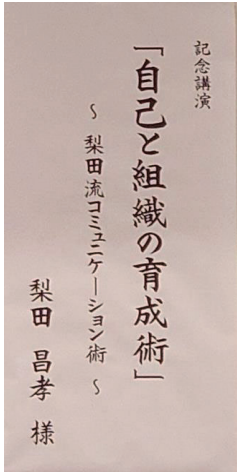 記念講演
「自己と組織の育成術」
～ 梨田流コミュニケーション術 ～
梨田 昌孝 様